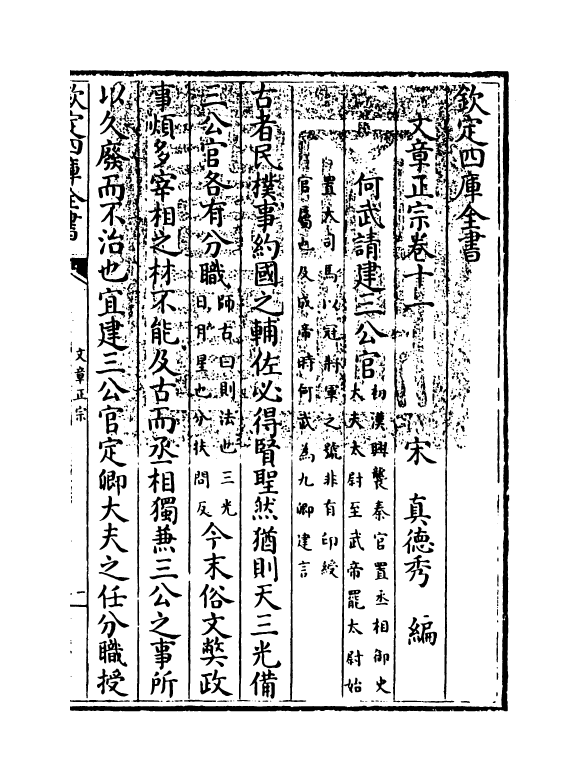 欽定四庫全書
文章正宗卷十一
宋 真德秀 編
何武請建三公官
初漢興襲秦官置丞相御史
大夫太尉至武帝罷太尉始
置大司馬以冠將軍之號非有印綬
官屬也及成帝時何武為九卿建言
古者民樸事約國之輔佐必得賢聖然猶則天三光備
三公官各有分職
師古曰則法也三光
日月星也分扶問反
今末俗文弊政
事煩多宰相之材不能及古而丞相獨兼三公之事所
以久廢而不治也宜建三公官定卿大夫之任分職授
欽定四庫全書
文章正宗
一